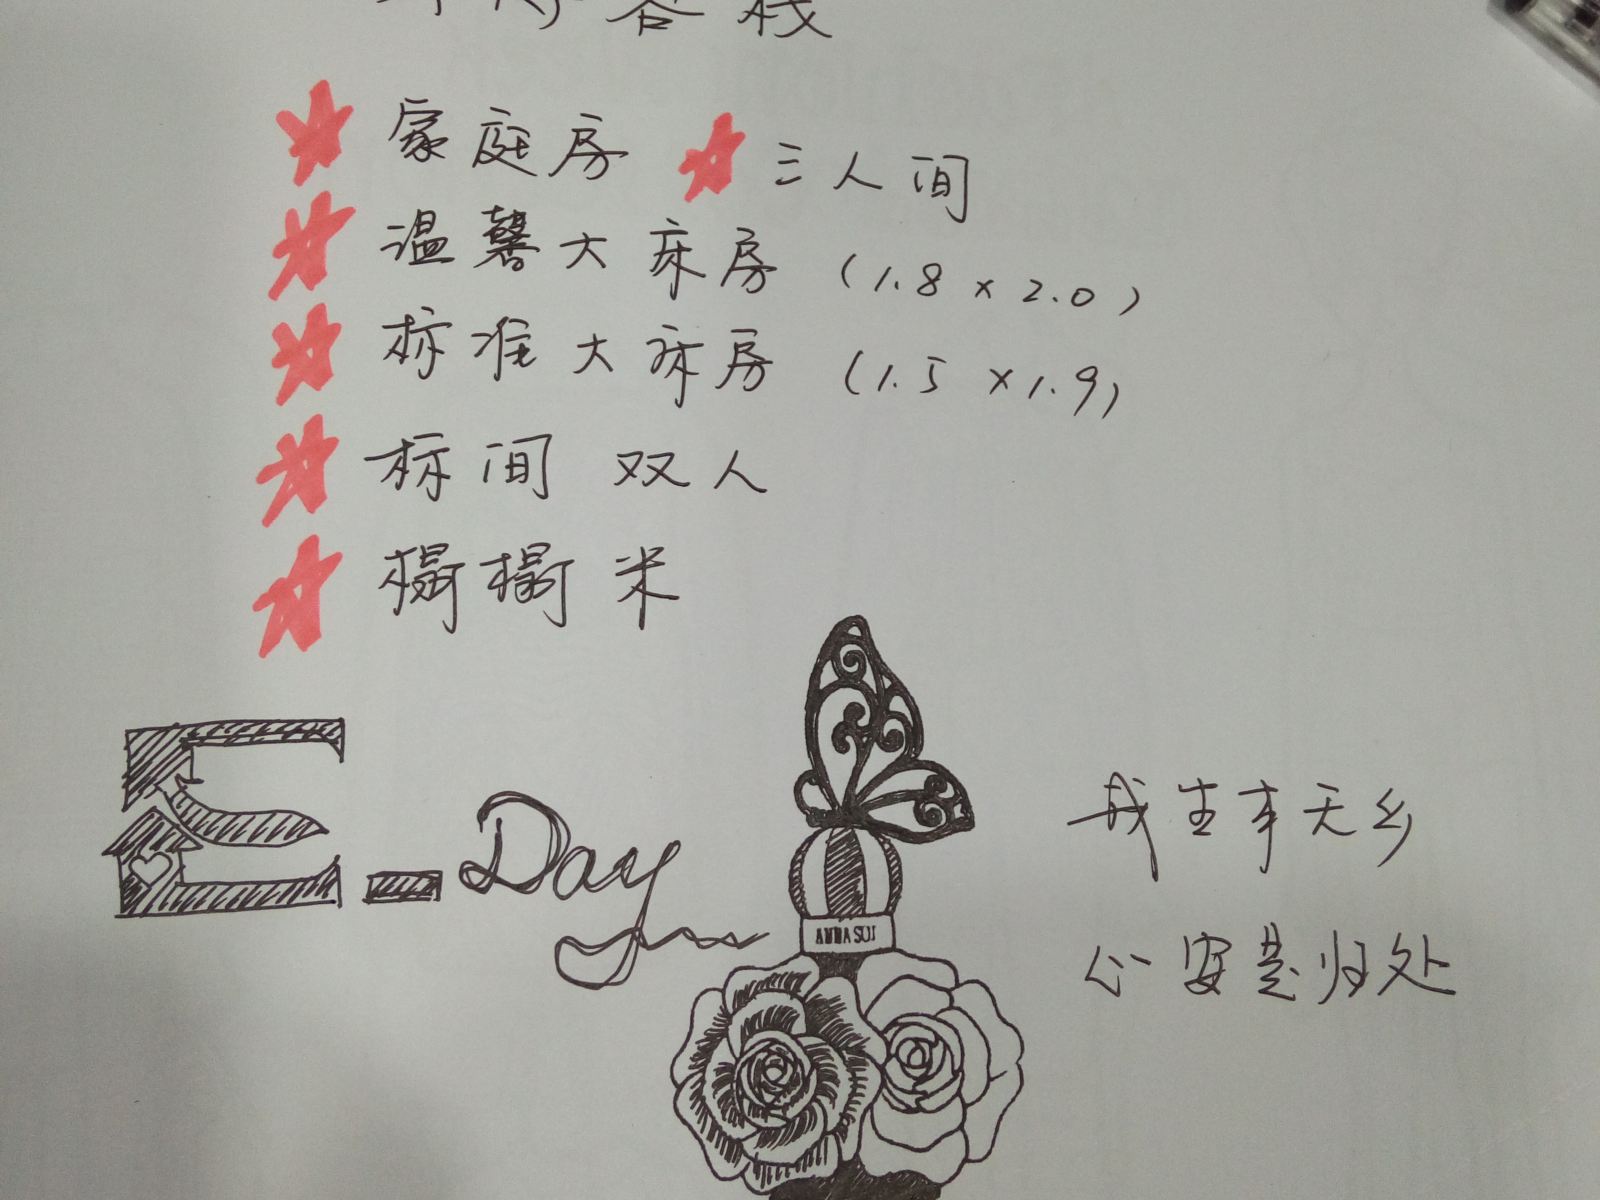 客栈
家庭房 三人间
温馨大床房 (1.8 × 2.0)
标准大床房 (1.5 × 1.9)
标间 双人
榻榻米
E_Day
ANNA SUI
我生本无乡
心安是归处